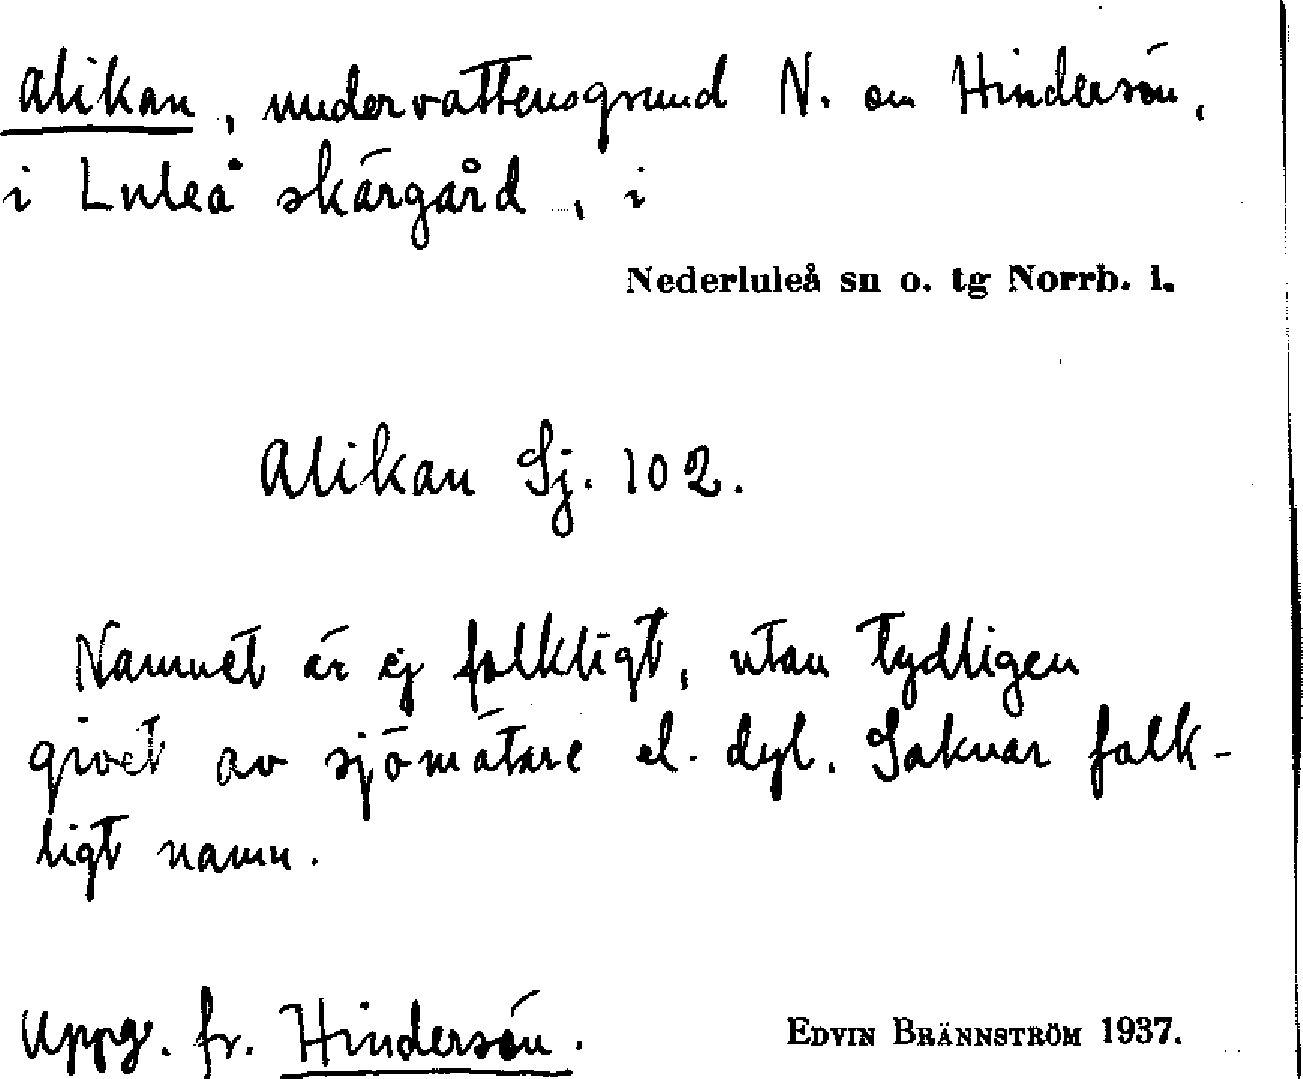 Alikan, undervattensgrund N. om Hindersön,
i Luleå skärgård, i
Nederluleå sn o. tg Norrb. l.
Alikan Sj. 102.
Namnet är ej folkligt, utan tydligen
givet av sjömätare el. dyl. Saknar folk-
ligt namn.
Uppg. fr. Hindersön.
EDVIN BRÄNNSTRÖM 1937.